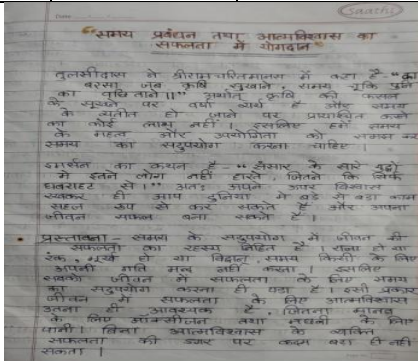 Date
Saachi
"समय प्रबंधन तथा आत्मविश्वास का
सफलता में योगदान"
तुलसीदास ने श्रीरामचरितमानस में कहा है - "का
बरसा जब कृषि सुखाने, समय चूकि पुनि
का पछिताने।" अर्थात् कृषि की फसल
के सूखने पर वर्षा व्यर्थ है और समय
के व्यतीत हो जाने पर प्रायश्चित करने
का कोई लाभ नहीं। इसलिए हमें समय
के महत्व और उपयोगिता को समझकर
समय का सदुपयोग करना चाहिए।
इमर्सन का कथन है "संसार के सारे युद्धों
में इतने लोग नहीं हारते, जितने कि सिर्फ
घबराहट से।" अतः अपने ऊपर विश्वास
रखकर ही आप दुनिया में बड़े से बड़ा काम
सहज रूप से कर सकते हैं और अपना
जीवन सफल बना सकते हैं।
प्रस्तावना - समय के सदुपयोग में जीवन की
सफलता का रहस्य निहित है। राजा हो या
रंक, मूर्ख हो या विद्वान, समय किसी के लिए
अपनी गति मन्द नहीं करता। इसलिए
सबको जीवन में सफलता के लिए समय
का सदुपयोग करना ही पड़ा है। इसी प्रकार
जीवन में सफलता के लिए आत्मविश्वास
उतना ही आवश्यक है, जितना मानव
के लिए ऑक्सीजन तथा मछली के लिए
पानी। बिना आत्मविश्वास के व्यक्ति
सफलता की डगर पर कदम बढ़ा ही नहीं
सकता।